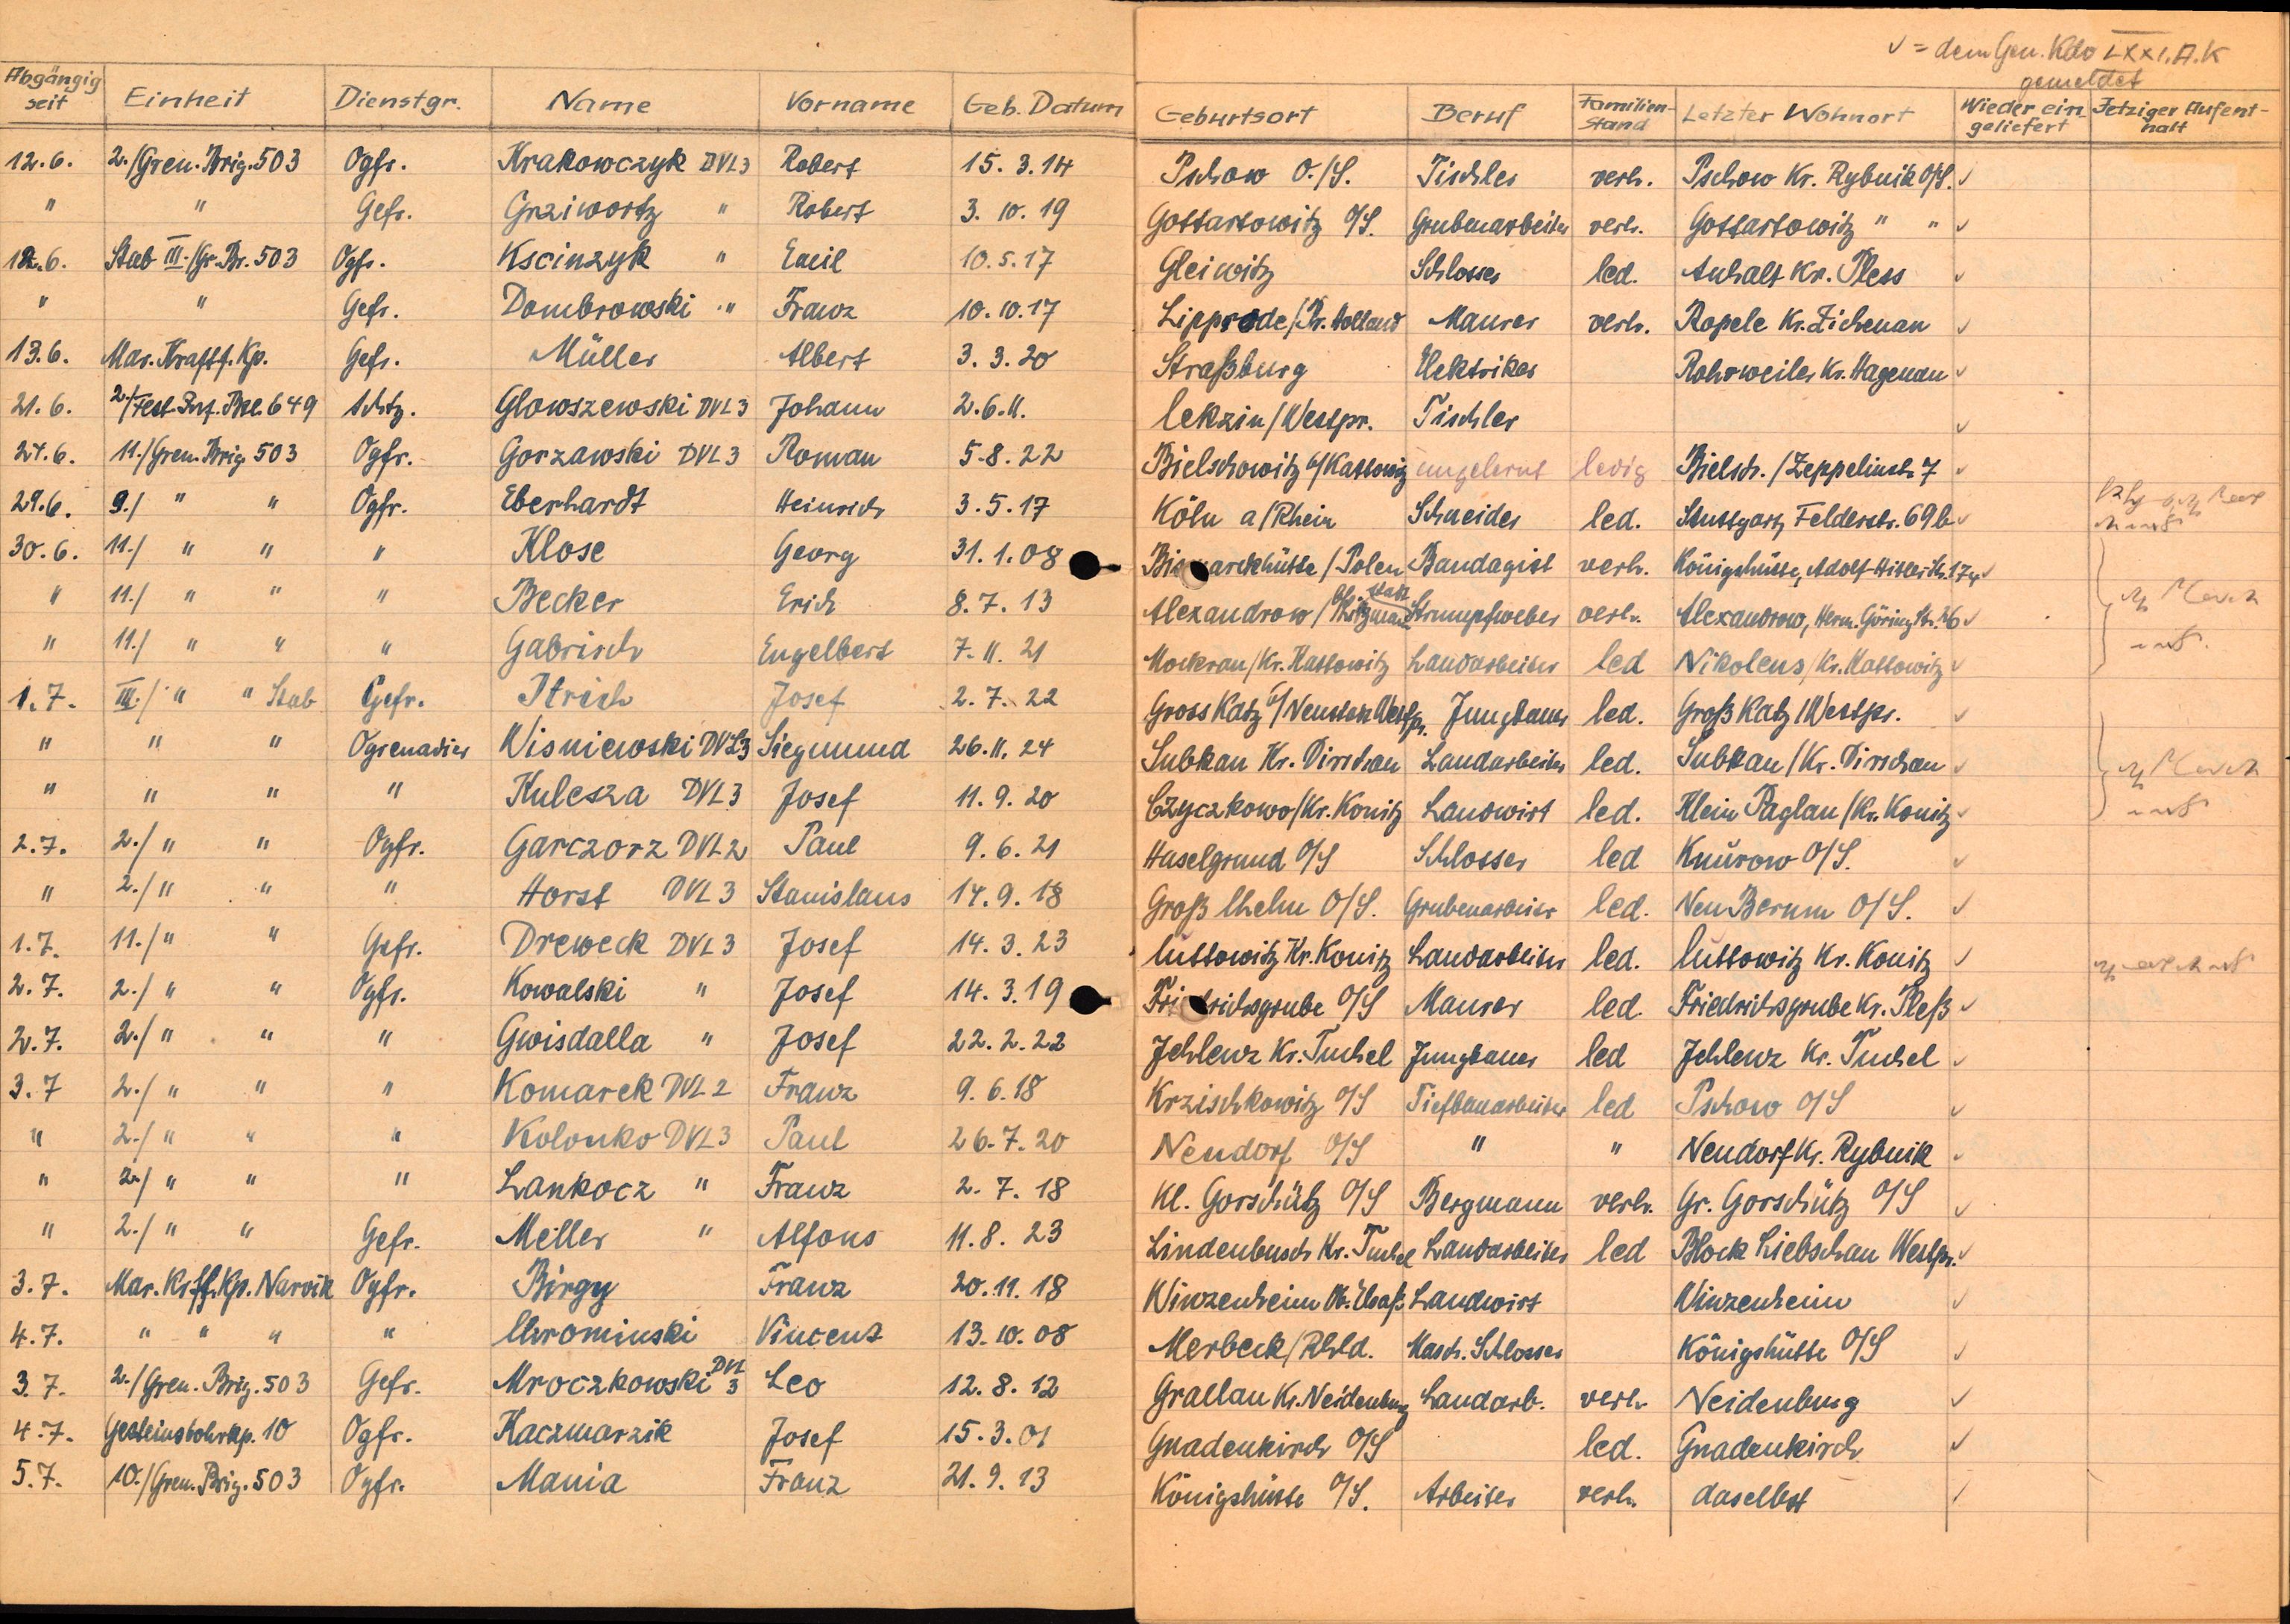 ✓ = dem Gen. Kdo LXXI. A.K
gemeldet
Abgängig seit Einheit Dienstgr. Name Vorname Geb. Datum Geburtsort Beruf Familien-Stand Letzter Wohnort Wieder ein-geliefert Jetziger Aufent-halt
12.6. 2./Gren. Brig. 503 Ogfr. Krakowczyk DVL3 Robert 15. 3. 14 Pschow O./S. Tischler verh. Pschow Kr. Rybnik O/S. ✓
" " Gefr. Grziwortz " Robert 3. 10. 19 Gottartowitz O/S. Grubenarbeiter verh. Gottartowitz " " ✓
12.6. Stab III./Gr. Br. 503 Ogfr. Kscinzyk " Emil 10. 5. 17 Gleiwitz Schlosser led. Anhalt Kr. Pless ✓
" " Gefr. Dombrowski " Franz 10. 10. 17 Lipprode/Pr. Holland Maurer verh. Ropele Kr. Zichenau ✓
13.6. Mar. Kraftf. Kp. Gefr. Müller Albert 3. 3. 20 Straßburg Elektriker Rohrweiler Kr. Hagenau ✓
21.6. 2./Fest. Inf. Btl. 649 Schtz. Glowszewski DVL3 Johann 2. 6. 11. Lekzin/Westpr. Tischler ✓
27.6. 11./Gren. Brig 503 Ogfr. Gorzawski DVL3 Roman 5. 8. 22 Bielschowitz b/Kattowitz ungelernt ledig Bielsch./Zeppelinstr. 7 ✓
29.6. 9./ " " Ogfr. Eberhardt Heinrich 3. 5. 17 Köln a/Rhein Schneider led. Stuttgart, Felderstr. 69b ✓
30.6. 11./ " " " Klose Georg 31. 1. 08 Bismarckhütte/Polen Bandagist verh. Königshütte, Adolf Hitlerstr. 174 ✓
" 11./ " " " Becker Erich 8. 7. 13 Alexandrow/Litzmannstadt Strumpfweber verh. Alexandrow, Herm. Göring Str. 26 ✓
" 11./ " " " Gabrisch Engelbert 7. 11. 21 Mockrau/Kr. Kattowitz Landarbeiter led Nikolens/Kr. Kattowitz ✓
1.7. III./ " " Stab Gefr. Itrich Josef 2. 7. 22 Gross Katz b/Neustadt Westpr. Jungbauer led. Groß Katz/Westpr. ✓
" " " Ogrenadier Wisniewski DVL3 Siegmund 26. 11. 24 Subkau Kr. Dirschau Landarbeiter led. Subkau/Kr. Dirschau ✓
" " " " Kulesza DVL3 Josef 11. 9. 20 Czyczkowo/Kr. Konitz Landwirt led. Klein Paglau/Kr. Konitz ✓
2.7. 2./ " " Ogfr. Garczorz DVL2 Paul 9. 6. 21 Haselgrund O/S Schlosser led Knurow O/S. ✓
" 2./ " " " Horst DVL3 Stanislaus 14. 9. 18 Groß Chelm O/S. Grubenarbeiter led. Neu Berunn O/S. ✓
1.7. 11./ " " Gefr. Dreweck DVL3 Josef 14. 3. 23 Luttowitz Kr. Konitz Landarbeiter led. Luttowitz Kr. Konitz ✓
2.7. 2./ " " Ogfr. Kowalski " Josef 14. 3. 19 Friedrichsgrube O/S Maurer led. Friedrichsgrube Kr. Pleß ✓
2.7. 2./ " " " Gwisdalla " Josef 22. 2. 22 Jehlenz Kr. Tuchel Jungbauer led Jehlenz Kr. Tuchel ✓
3.7 2./ " " " Komarek DVL2 Franz 9. 6. 18 Krzischkowitz O/S Tiefbauarbeiter led Pschow O/S ✓
" 2./ " " " Kolonko DVL3 Paul 26. 7. 20 Neudorf O/S " " Neudorf Kr. Rybnik ✓
" 2./ " " " Lankocz " Franz 2. 7. 18 Kl. Gorschütz O/S Bergmann verh. Gr. Gorschütz O/S ✓
" 2./ " " Gefr. Meller " Alfons 11. 8. 23 Lindenbusch Kr. Tuchel Landarbeiter led Block Liebschau Westpr. ✓
3.7. Mar. Krftf. Kp. Narvik Ogfr. Birgy Franz 20. 11. 18 Winzenheim Ob. Elsaß Landwirt Winzenheim ✓
4.7. " " " " Chrominski Vincent 13. 10. 08 Merbeck/Rhld. Masch. Schlosser Königshütte O/S ✓
3.7. 2./Gren. Brig. 503 Gefr. Mroczkowski DVL 3 Leo 12. 8. 12 Grallau Kr. Neidenburg Landarb. verh. Neidenburg ✓
4.7. Gesteinsbohrkp. 10 Ogfr. Kaczmarzik Josef 15. 3. 01 Gnadenkirch O/S led. Gnadenkirch ✓
5.7. 10./Gren. Brig. 503 Ogfr. Mania Franz 21. 9. 13 Königshütte O/S. Arbeiter verh. daselbst ✓